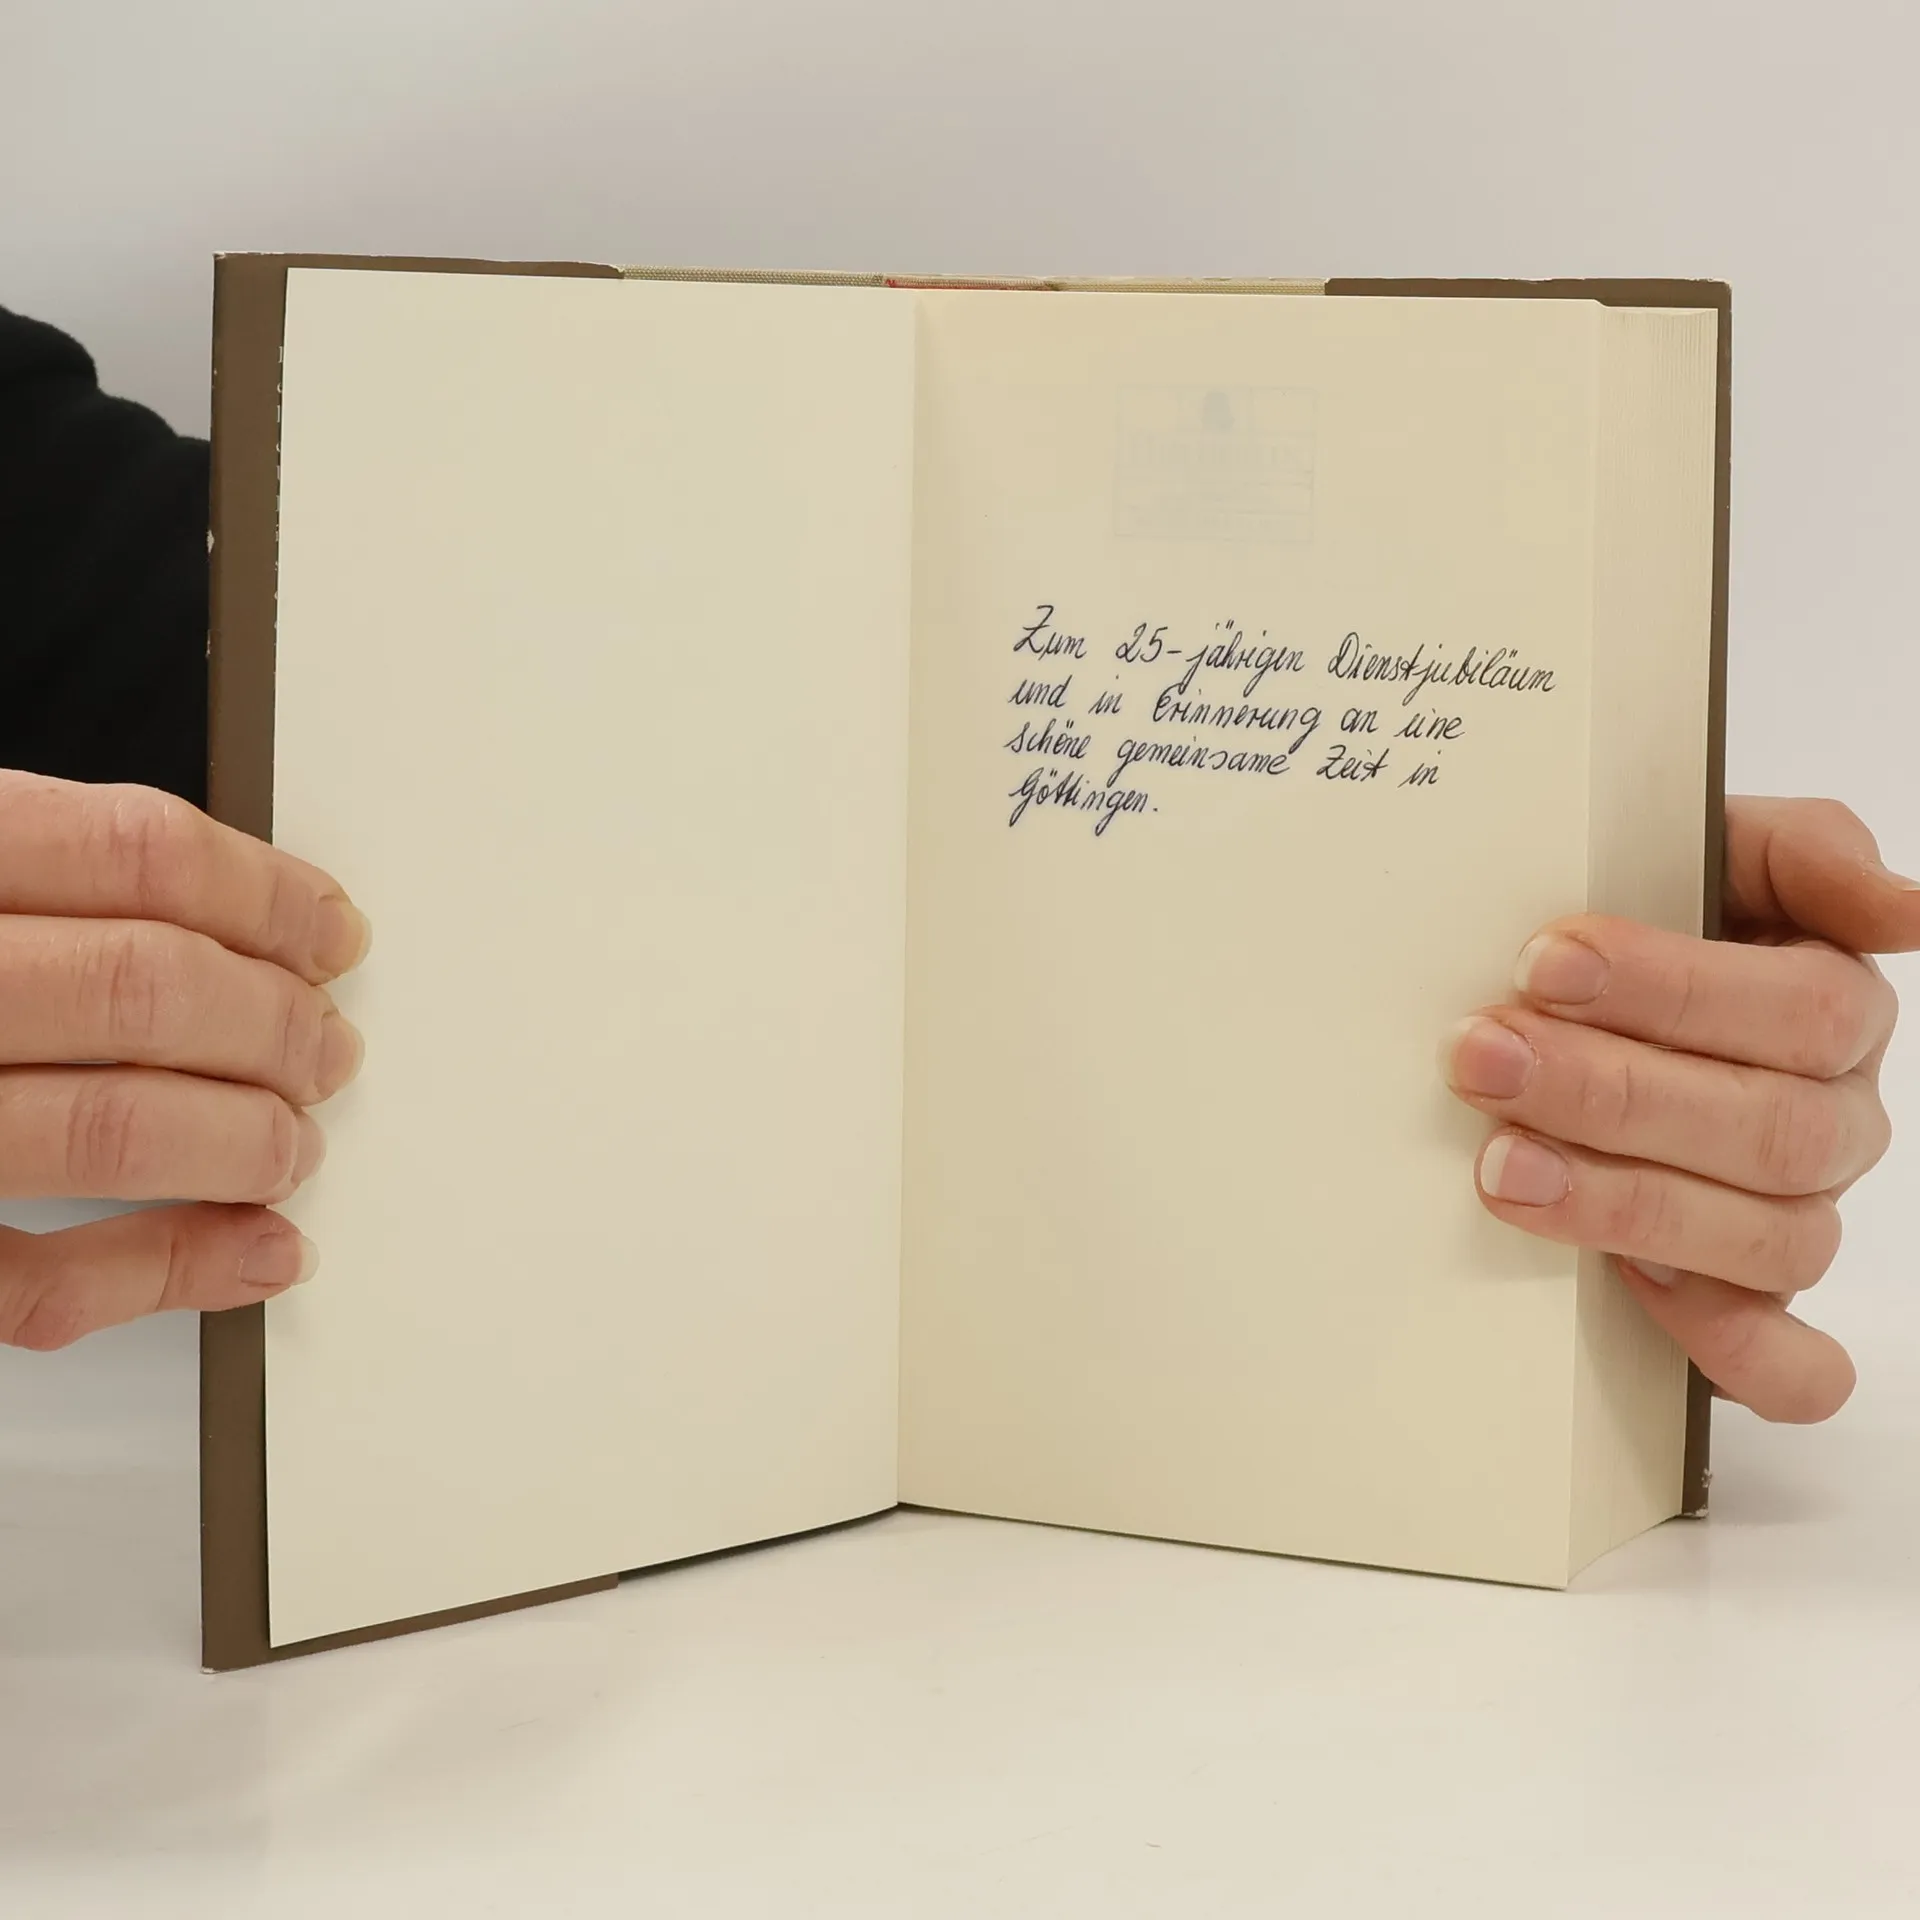 Zum 25-jährigen Dienstjubiläum
und in Erinnerung an eine
schöne gemeinsame Zeit in
Göttingen.